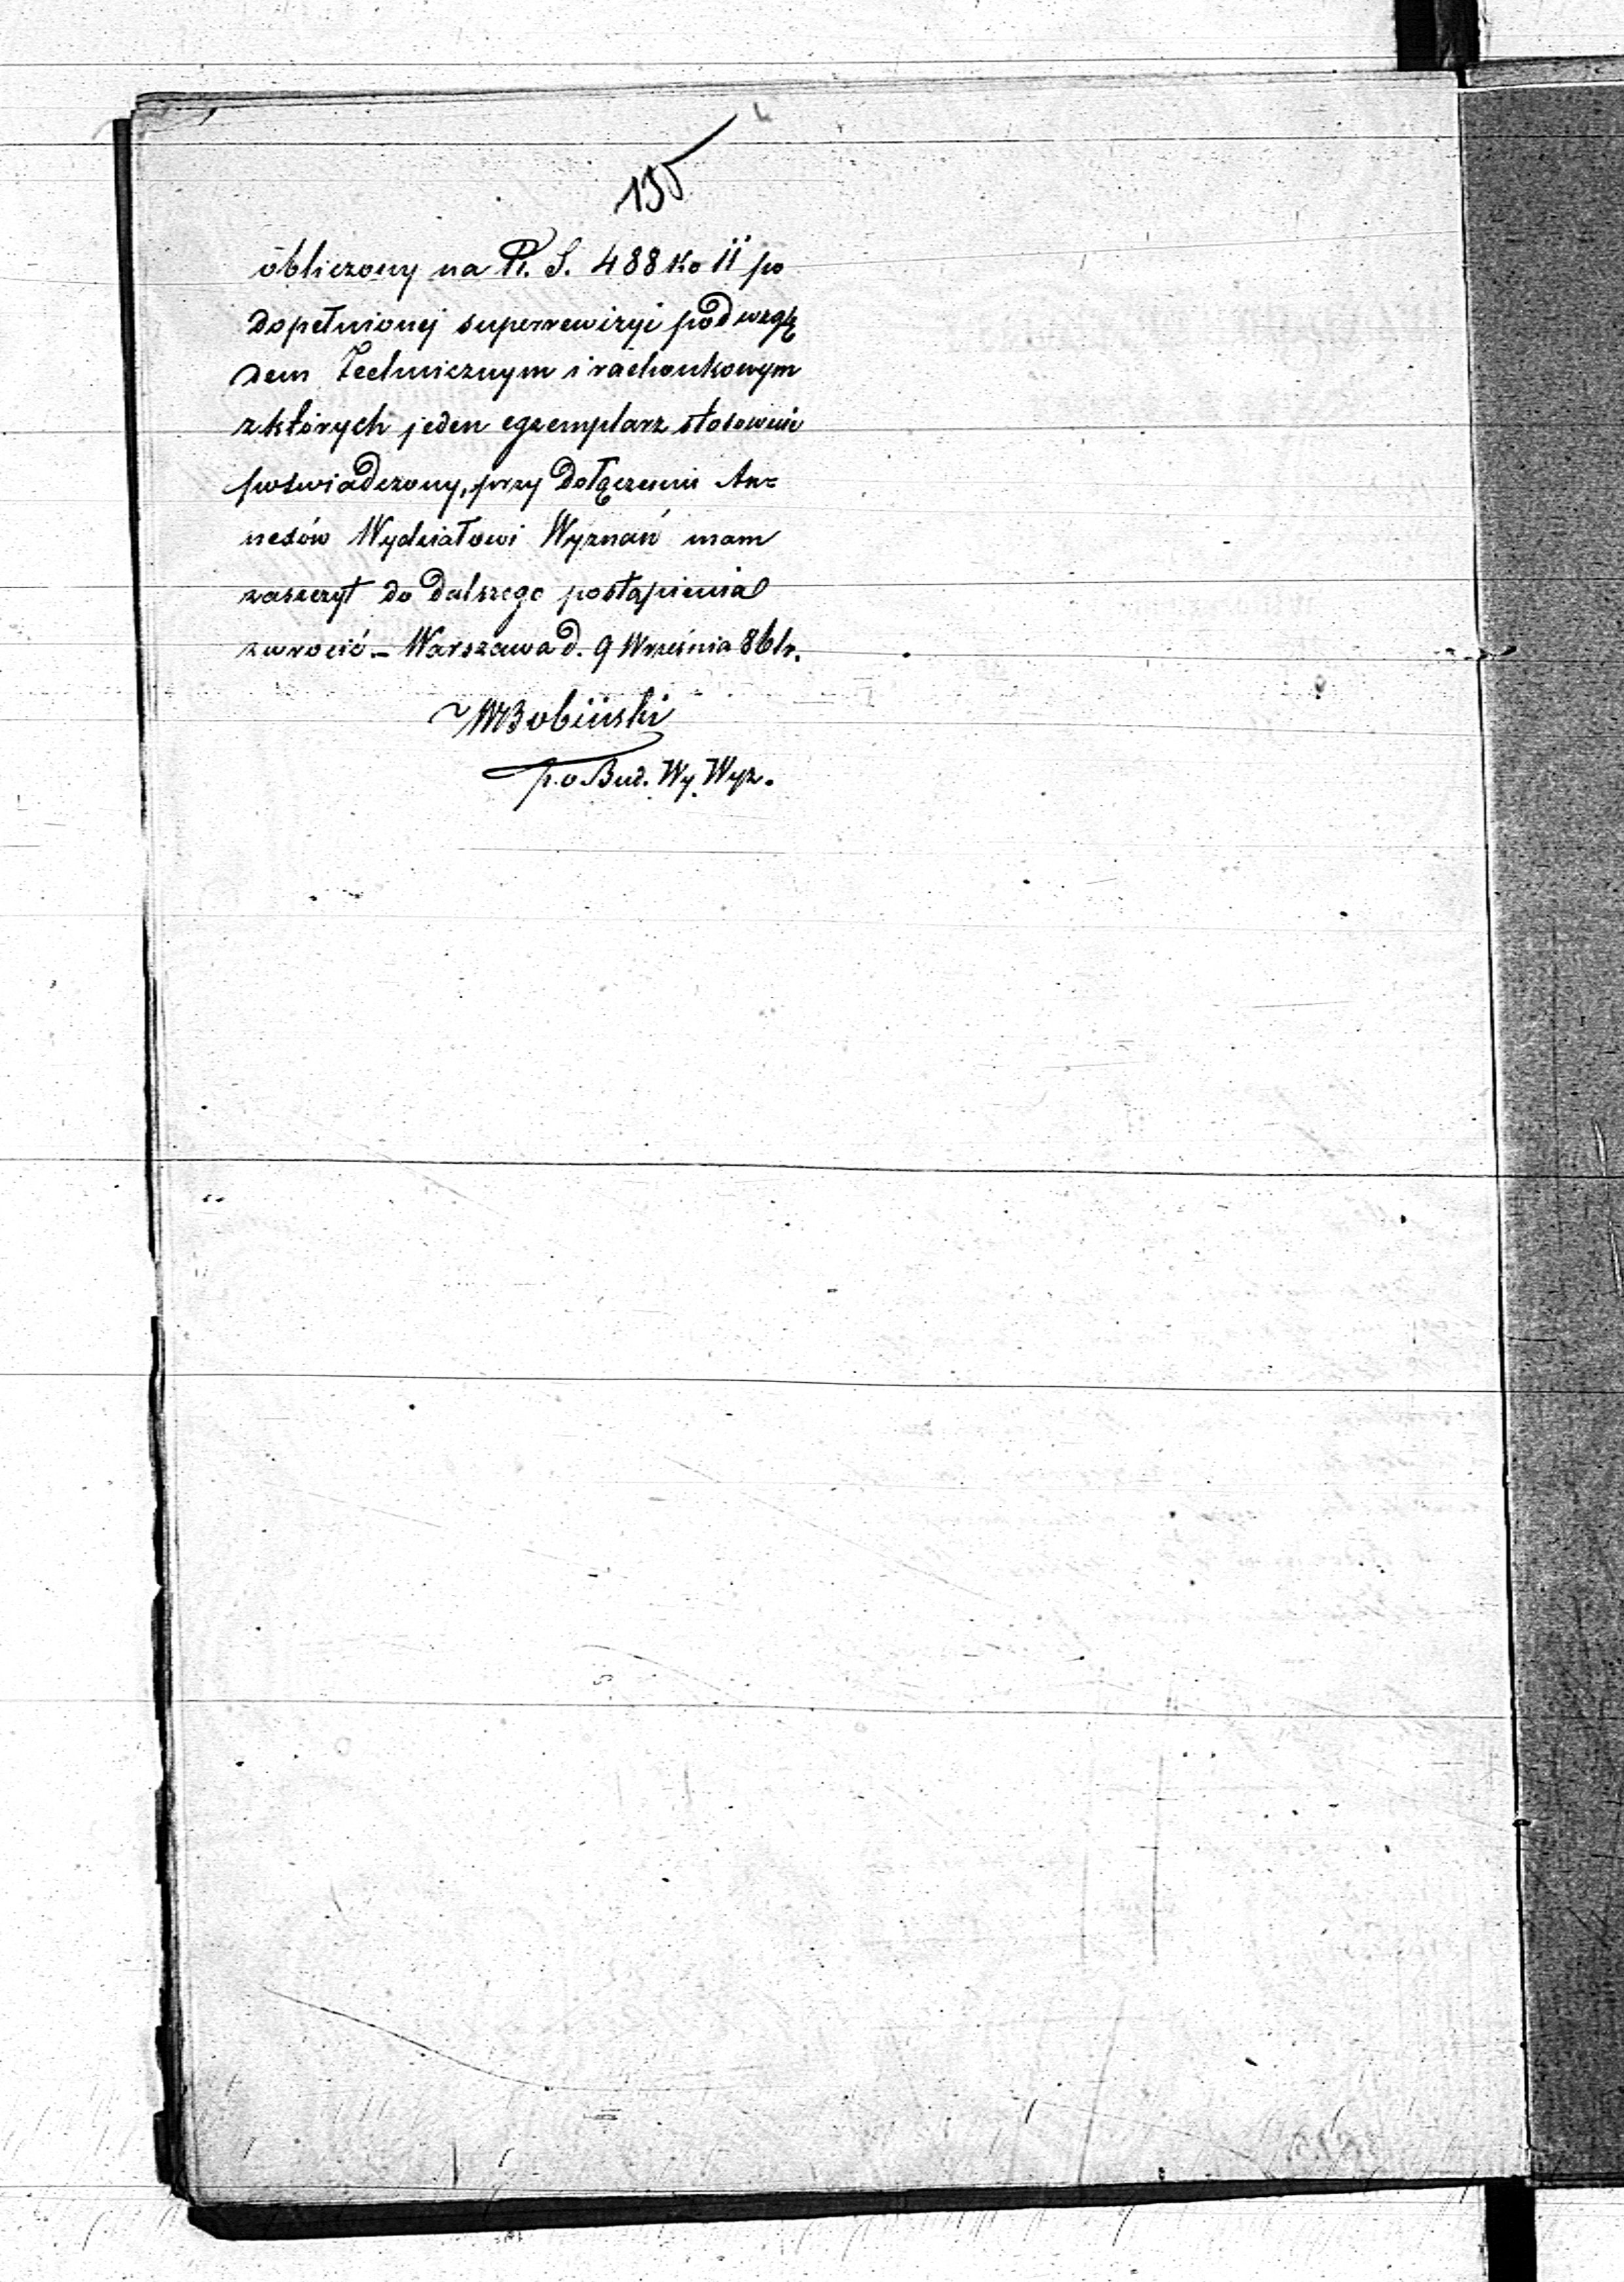 195
obliczony na R. S. 488 ko 11 po
dopełnionej superrewizyi pod wzglę
dem Technicznym i rachunkowym
z których jeden egzemplarz stosownie
poświadczony, przy dołączeniu An=
nexów Wydziałowi Wyznań mam
zaszczyt do dalszego postąpienia
zwrócić. – Warszawa d. 9 Września 861 r.
MBobiński
p. o Bud. Wy. Wyz.